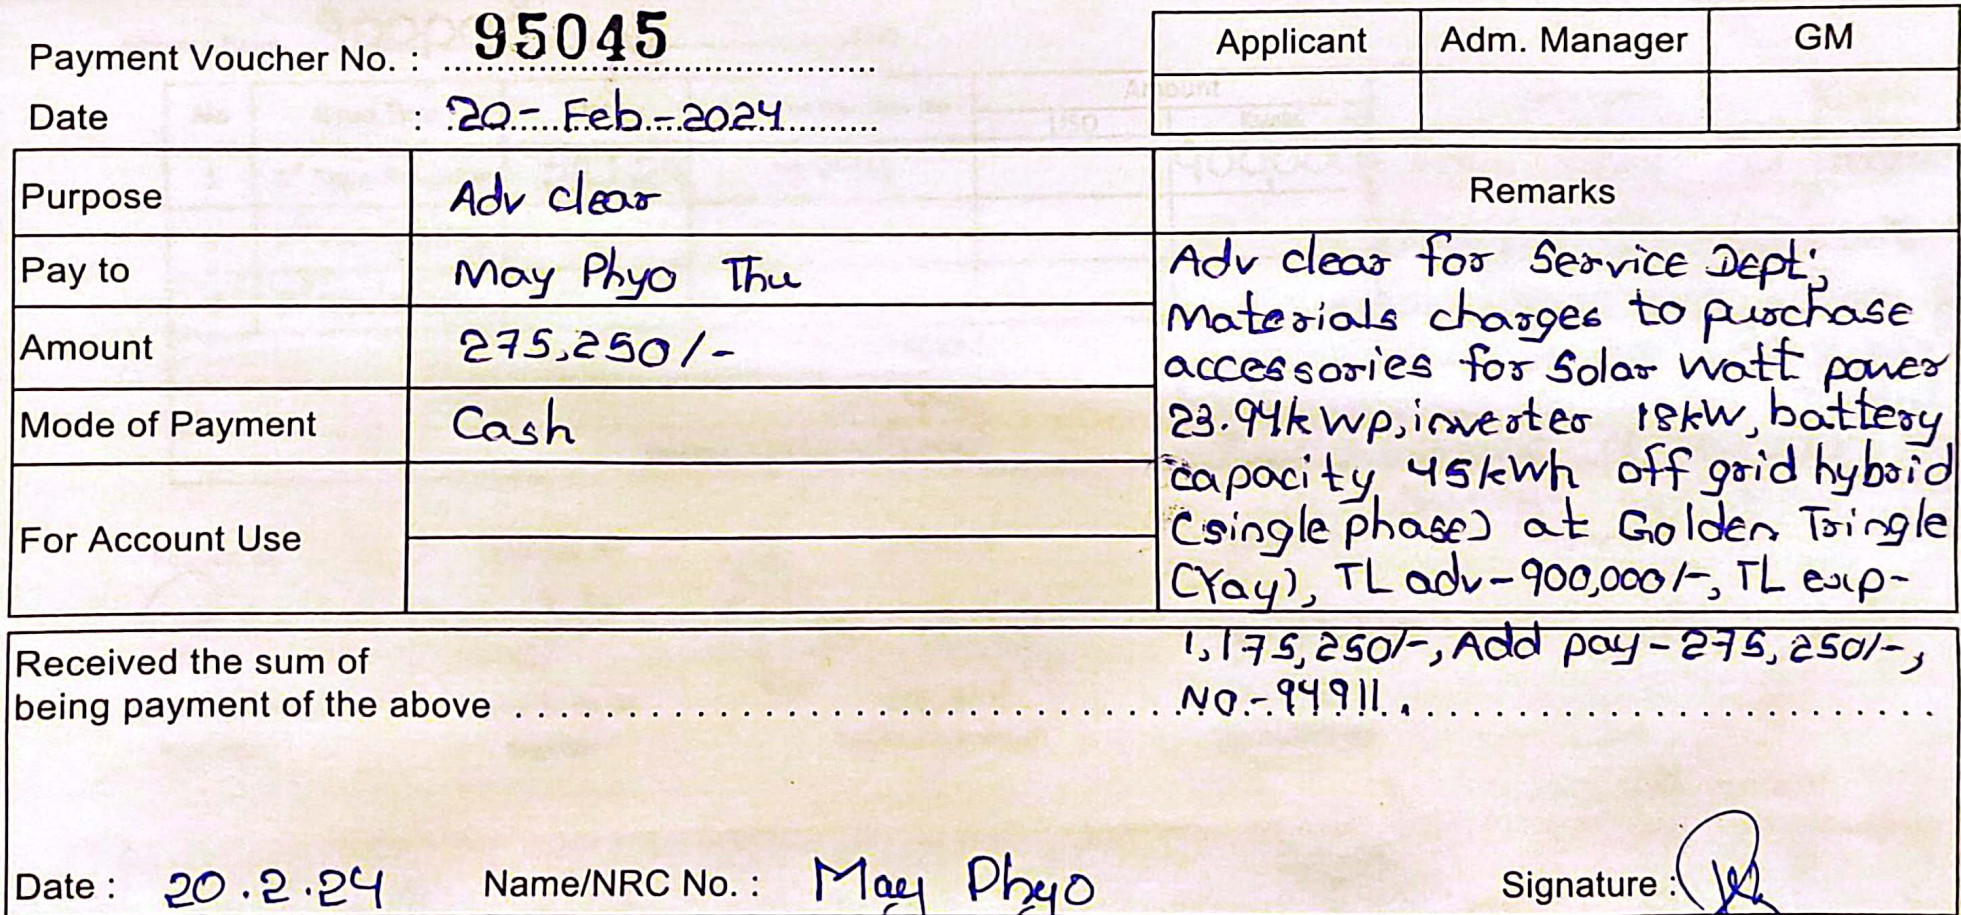 Payment Voucher No. : 95045
Applicant Adm. Manager GM
Date : 20-Feb-2024
Purpose Adv clear
Remarks
Pay to May Phyo Thu
Amount 275,250/-
Mode of Payment Cash
For Account Use
Adv clear for Service Dept;
Materials charges to purchase
accessories for Solar Watt power
23.94kWp, inverter 18kW, battery
capacity 45kWh off grid hybrid
(single phase) at Golden Tringle
(Yay), TL adv-900,000/-, TL exp-
1,175,250/-, Add pay-275,250/-,
NO-94911.
Received the sum of
being payment of the above
Date : 20.2.24 Name/NRC No. : May Phyo Signature :